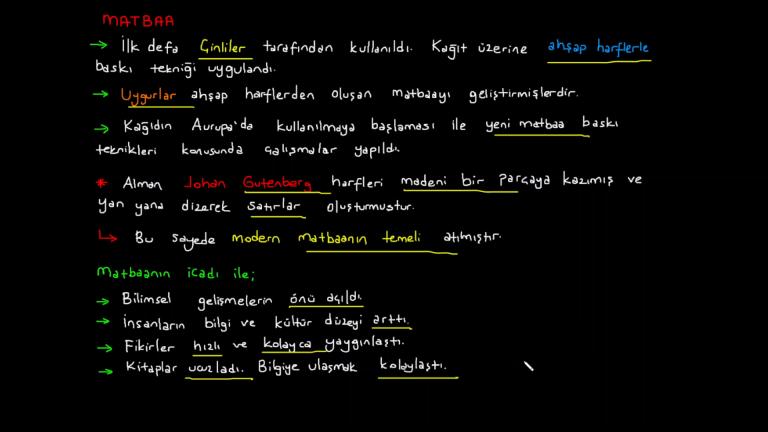 MATBAA
→ İlk defa Çinliler tarafından kullanıldı. Kağıt üzerine ahşap harflerle
baskı tekniği uygulandı.
→ Uygurlar ahşap harflerden oluşan matbaayı geliştirmişlerdir.
→ Kağıdın Avrupa'da kullanılmaya başlaması ile yeni matbaa baskı
teknikleri konusunda çalışmalar yapıldı.
* Alman Johan Gutenberg harfleri madeni bir parçaya kazımış ve
yan yana dizerek satırlar oluşturmuştur.
↳ Bu sayede modern matbaanın temeli atılmıştır.
Matbaanın icadı ile;
→ Bilimsel gelişmelerin önü açıldı.
→ İnsanların bilgi ve kültür düzeyi arttı.
→ Fikirler hızlı ve kolayca yaygınlaştı.
→ Kitaplar ucuzladı. Bilgiye ulaşmak kolaylaştı.